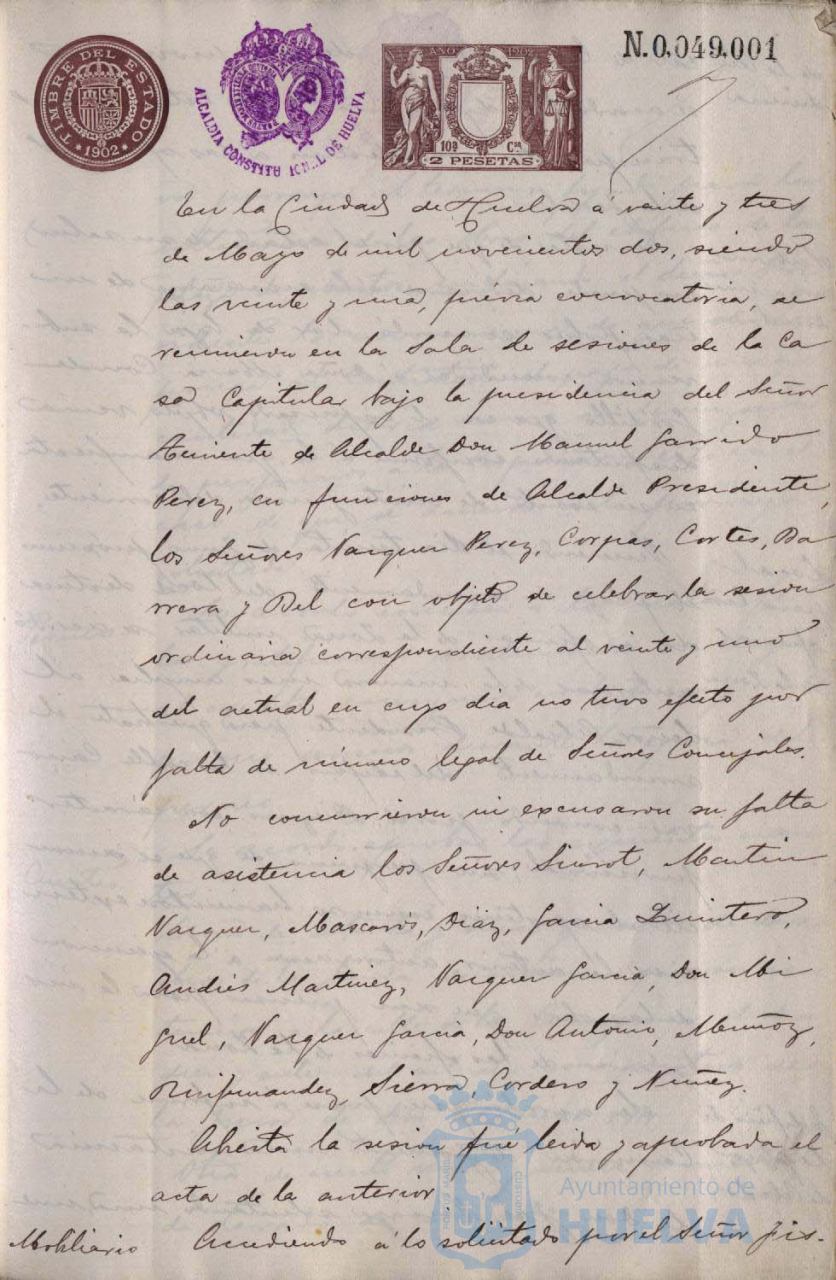 TIMBRE DEL ESTADO
* 1902 *
ALCALDIA CONSTITUCIONAL DE HUELVA
AÑO 1902
10ª Cse
2 PESETAS
N.0,049,001
En la Ciudad de Huelva á veinte y tres
de Mayo de mil novecientos dos, siendo
las veinte y una, prévia convocatoria, se
reunieron en la Sala de sesiones de la Ca
sa Capitular bajo la presidencia del Señor
Teniente de Alcalde Don Manuel Garrido
Perez, en funciones de Alcalde Presidente,
los Señores Vazquez Perez, Corpas, Cortes, Ba
rrera y Bel con objeto de celebrar la sesion
ordinaria correspondiente al veinte y uno
del actual en cuyo dia no tuvo efecto por
falta de número legal de Señores Concejales.
No concurrieron ni excusaron su falta
de asistencia los Señores Siurot, Martin
Vazquez, Mascarós, Diáz, Garcia Quintero,
Andrés Martinez, Vazquez Garcia, Don Mi
guel, Vazquez Garcia, Don Antonio, Muñoz,
Ruifernandez, Sierra, Cordero y Nuñez.
Abierta la sesion fué leida y aprobada el
acta de la anterior.
Mobiliario Accediendo á lo solicitado por el Señor Jis-
Ayuntamiento de
HUELVA